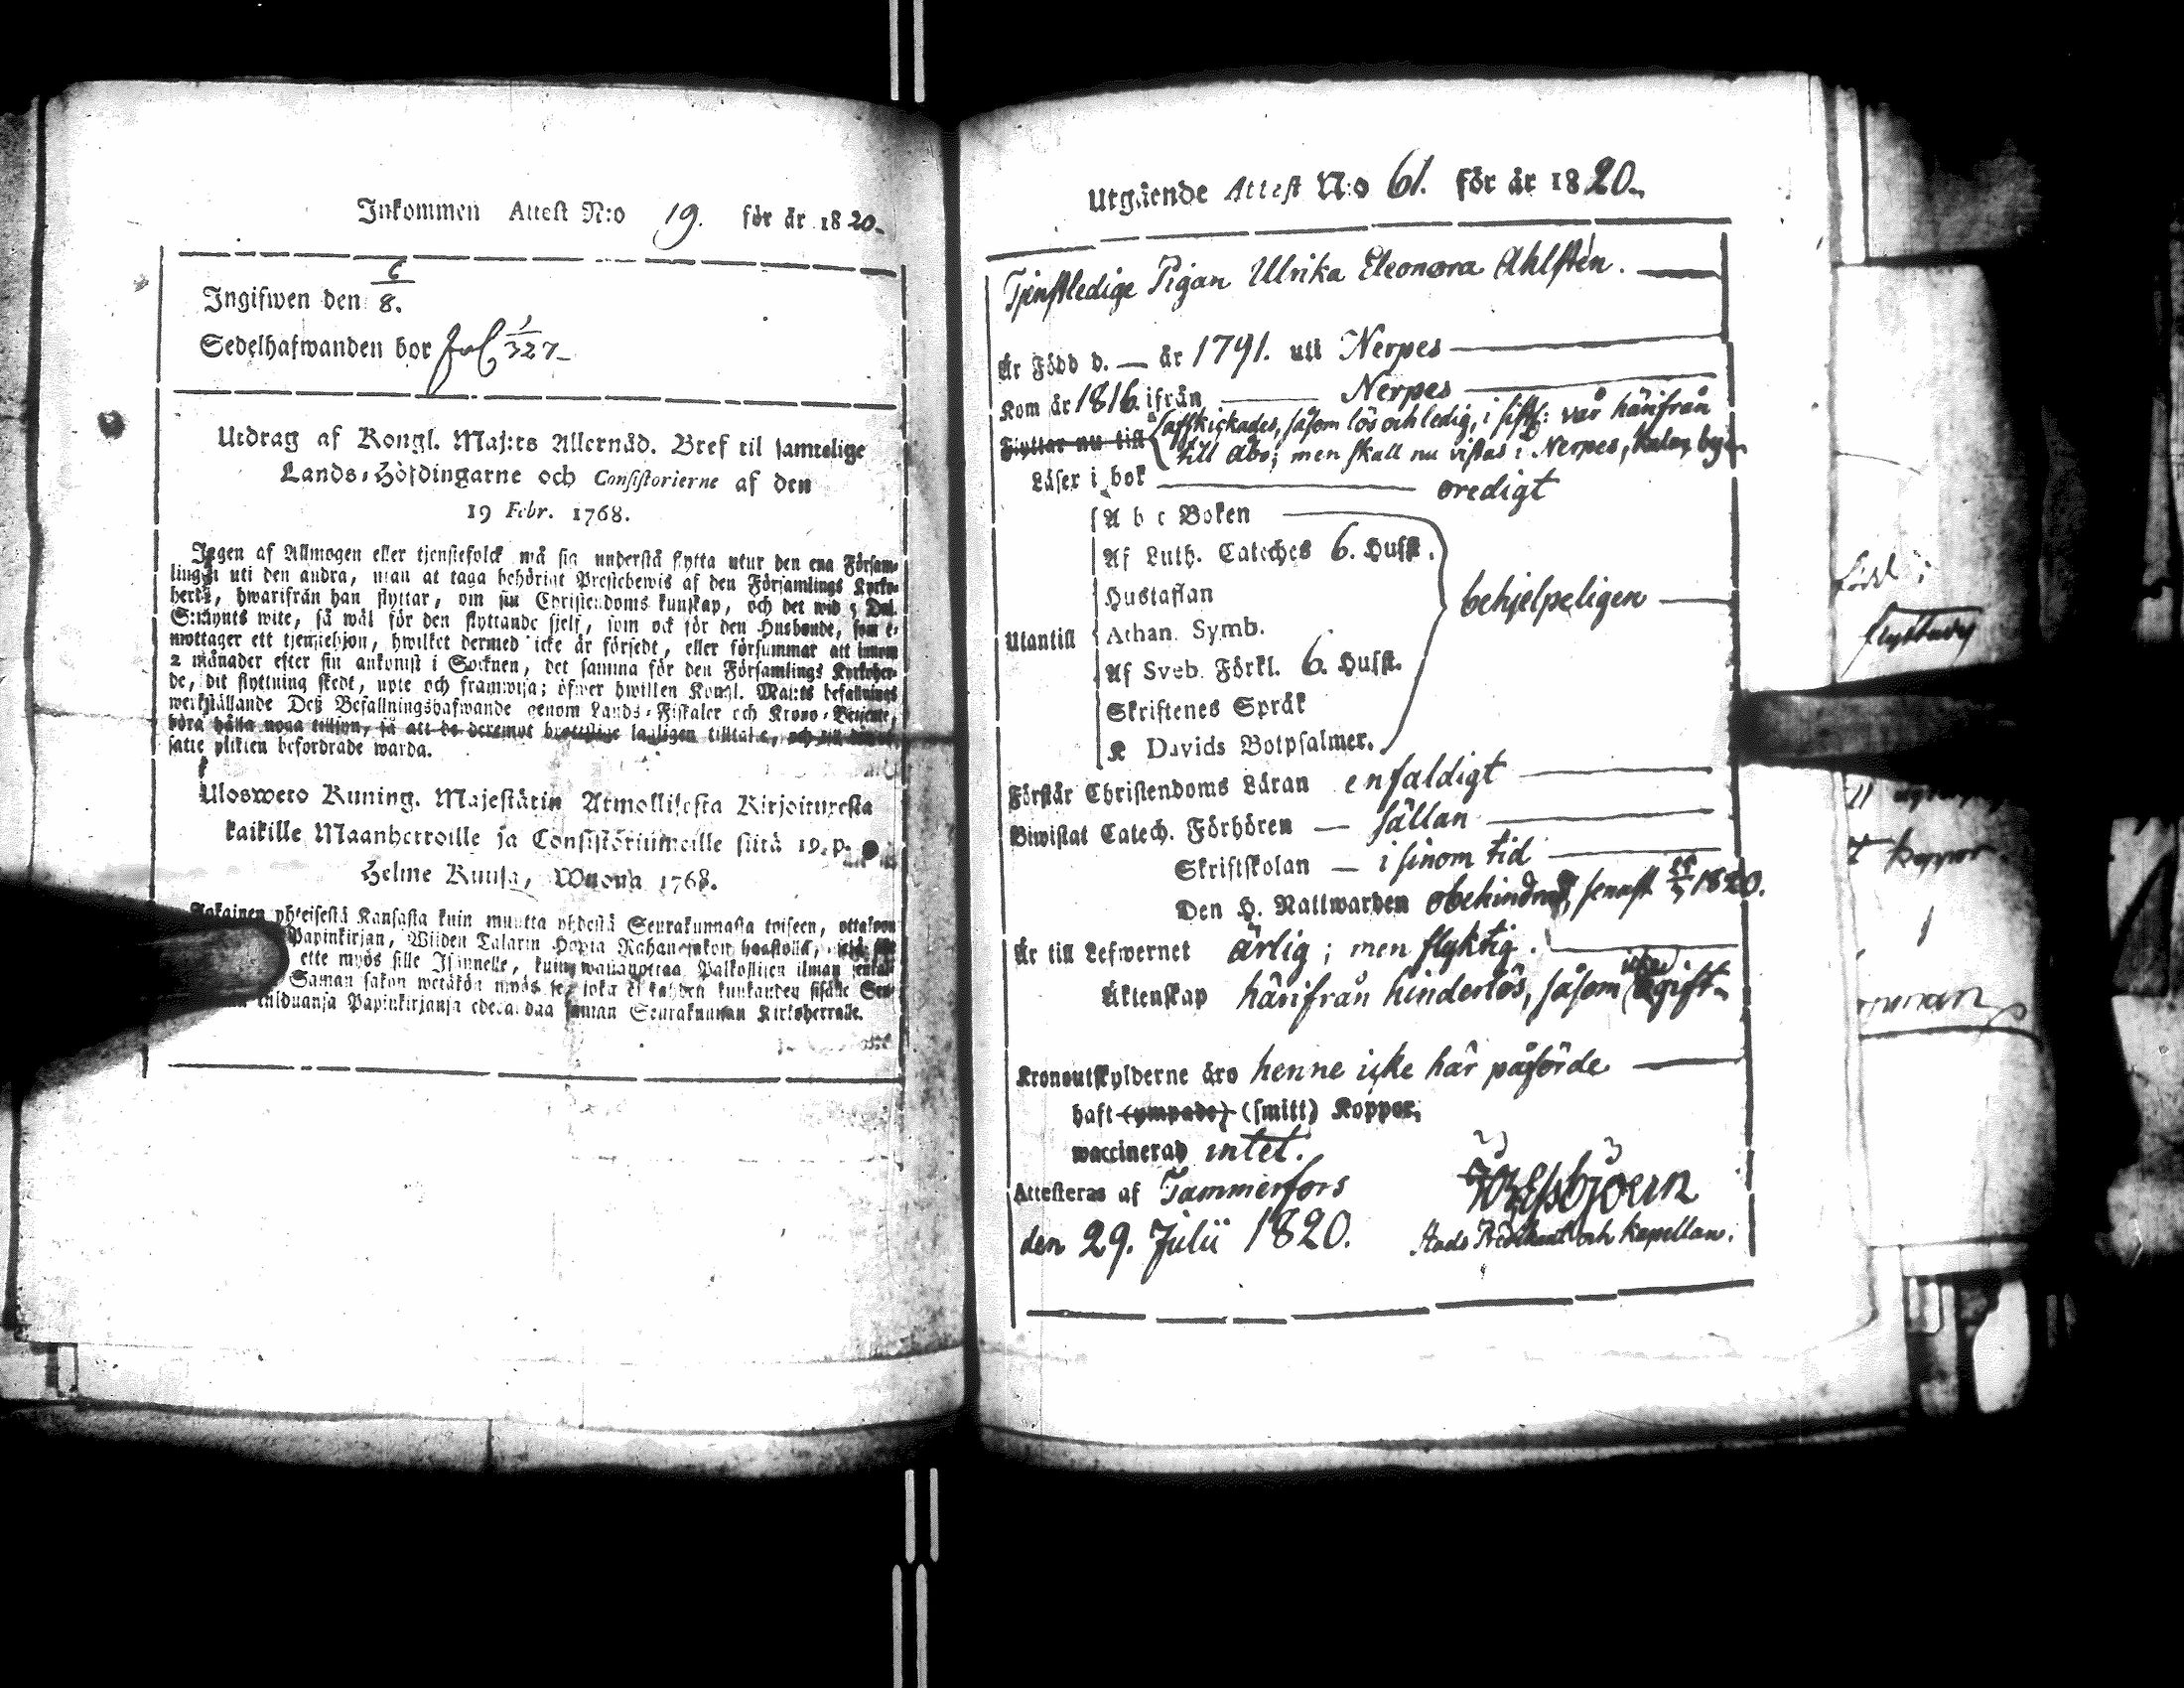 Inkommen Attest N:o 19. för år 1820.
Ingifwen den 6/8.
Sedelhafwanden bor fol 1/327
Utdrag af Kongl. Maj:ts Allernåd. Bref til samtelige
Lands-Höfdingarne och Consistorierne af den
19 Febr. 1768.
Ingen af Allmogen eller tjenstefolck må sig understå flytta utur den ena Försam-
lingen uti den andra, utan at taga behörigt Prestebewis af den Församlings Kyrko-
herde, hwarifrån han flyttar, om sin Christendoms kunskap, och det wid 5 Dal.
S:mynts wite, så wäl för den flyttande sjelf, som ock för den Husbonde, som e-
mottager ett tjenstehjon, hwilket dermed icke är försedt, eller försummar att innom
2 månader efter sin ankomst i Socknen, det samma för den Församlings Kyrkoher-
de, dit flyttning skedt, upte och framwisa; öfwer hwilken Kongl. Maj:ts befallnings
werkställande Deß Befallningshafwande genom Lands-Fiskaler och Krono-Betjente,
böra hålla noga tillsyn, så att de deremot brottslige lagligen tilltalte, och till
satte plikten befordrade warda.
Ulosweto Kuning. Majestätin Armollisesta Kirjoituxesta
kaikille Maanherroille ja Consistöriumeille siitä 19. p.
Helme Kuusa, Wuonna 1768.
yhteisestä Kansasta kuin muutta yhdestä Seurakunnasta toiseen, ottakoon
Papinkirjan, Wiiden Talarin Hopia Rahan sakon haastolla,
ette myös sille Isännelle, kuin wastanottaa Palkollisen ilman
Saman sakon wetäkön myös se, joka ei kahden kuukauden sisälle Seu-
Papinkirjansa edesandaa saman Seurakunnan Kirkoherralle.
Utgående Attest N:o 61. för år 1820.
Tjenstledige Pigan Ulrika Eleonora Ahlstén.
Är Född d. — år 1791. uti Nerpes
Kom år 1816. ifrån Nerpes
Flyttar nu till (affskickades, såsom lös och ledig, i sistl: vår härifrån
till Åbo; men skall nu vistas i Nerpes,
Läser i bok oredigt
A b c Boken
Af Luth. Cateches 6. Hufst.
Hustaflan
Utantill Athan. Symb. behjelpeligen
Af Sveb. Förkl. 6. Hufst.
Skriftenes Språk
K Davids Botpsalmer.
Förstår Christendoms Läran enfaldigt
Biwistat Catech. Förhören — sällan
Skriftskolan — i sinom tid
Den H. Nattwarden obehindrad, senast 1820.
Är till Lefwernet ärlig; men flyktig.
Äktenskap härifrån hinderlös, såsom ogift
Kronoutskylderne äro henne icke här påförde
haft (ympade) (smitt) Koppor,
waccinerad intet.
Attesteras af Tammerfors
den 29. Julii 1820.
Stads Prédikant och Kapellan.
födt
flyttar
koppor